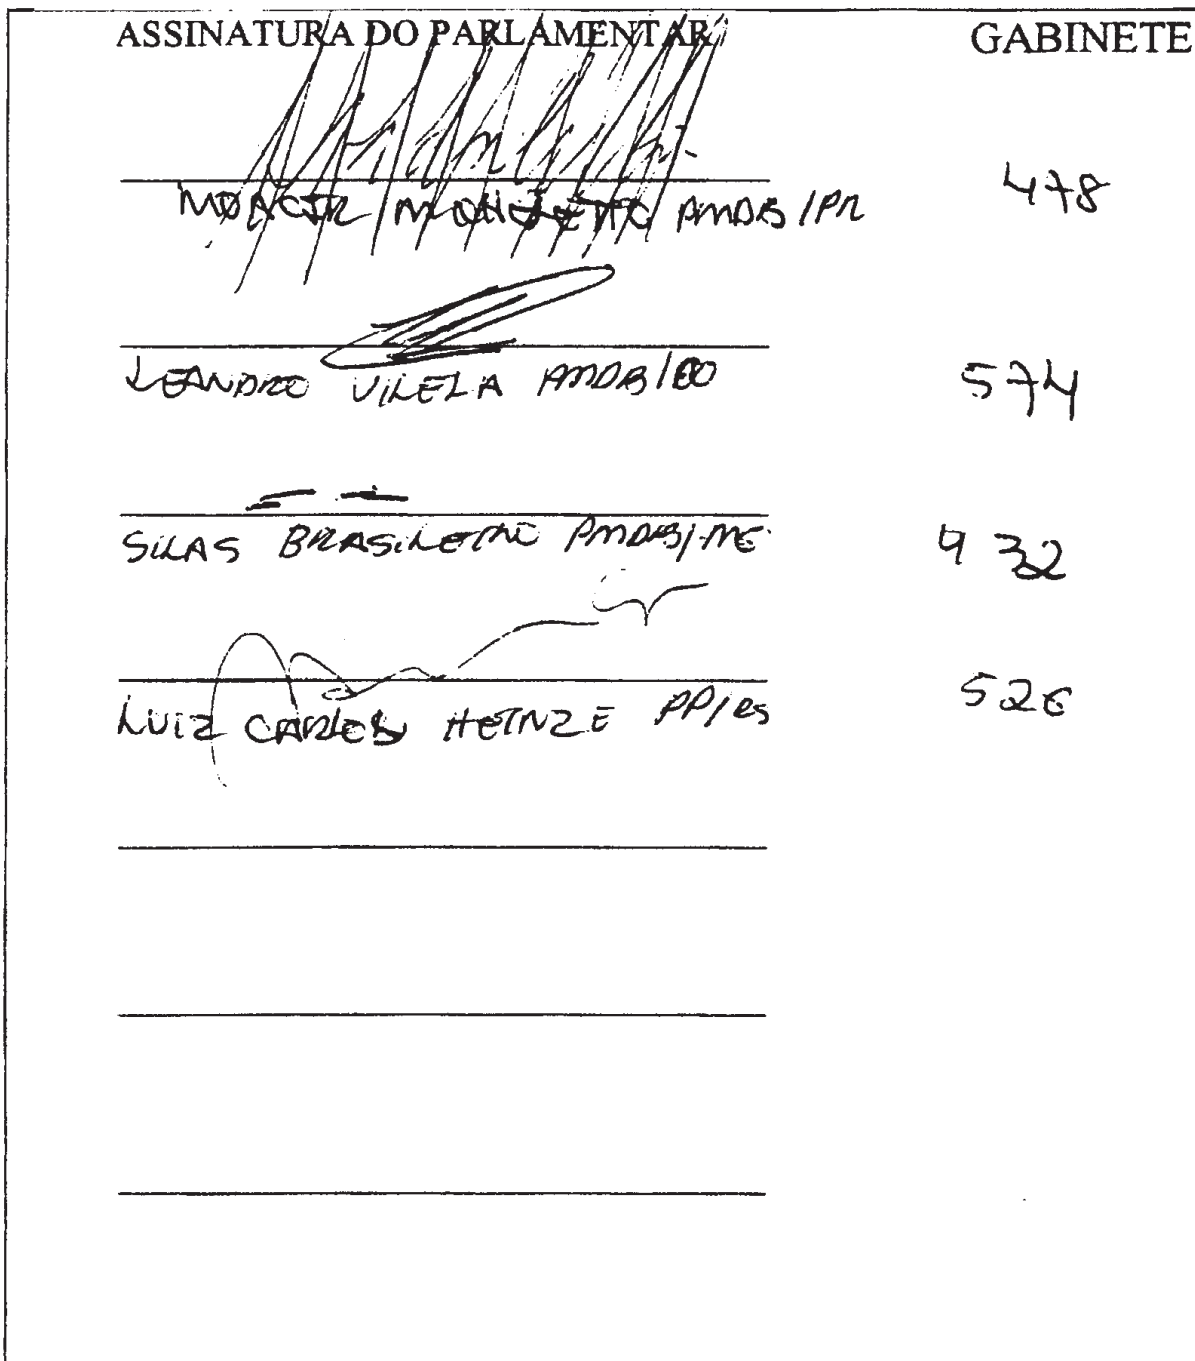 ASSINATURA DO PARLAMENTAR GABINETE
MOACIR MICHELETTO PMDB/PR 478
LEANDRO VILELA PMDB/GO 574
SILAS BRASILEIRO PMDB/MG 932
LUIZ CARLOS HEINZE PP/RS 526